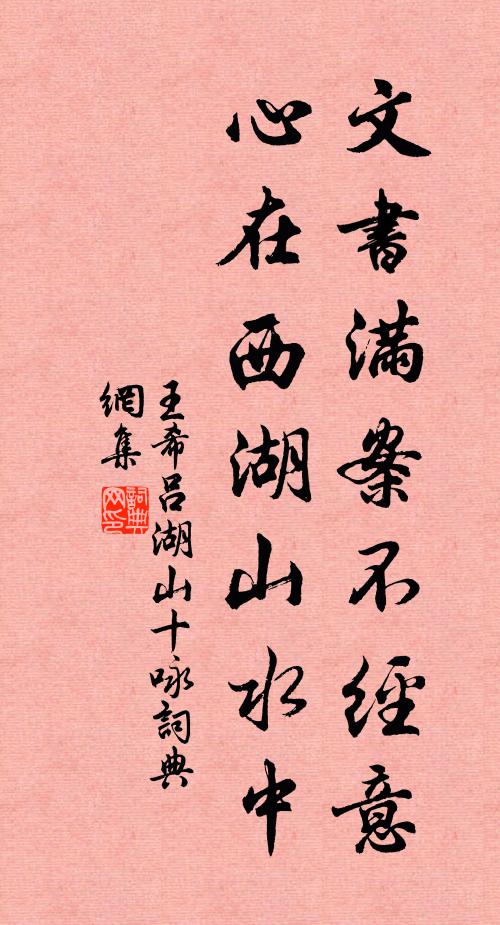 文書滿案不經意
心在西湖山水中
王希呂湖山十咏詞典
網集
詞典
网印